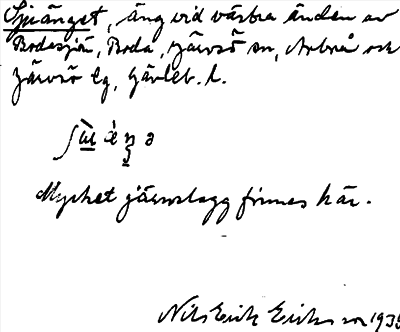 Sjuänget, äng vid västra änden av
Bodasjön, Boda, Järvsö sn, Arbrå och
Järvsö tg, Gävleb. l.
Mycket järnslagg finnes här.
Nils Erik Eriksson 1935